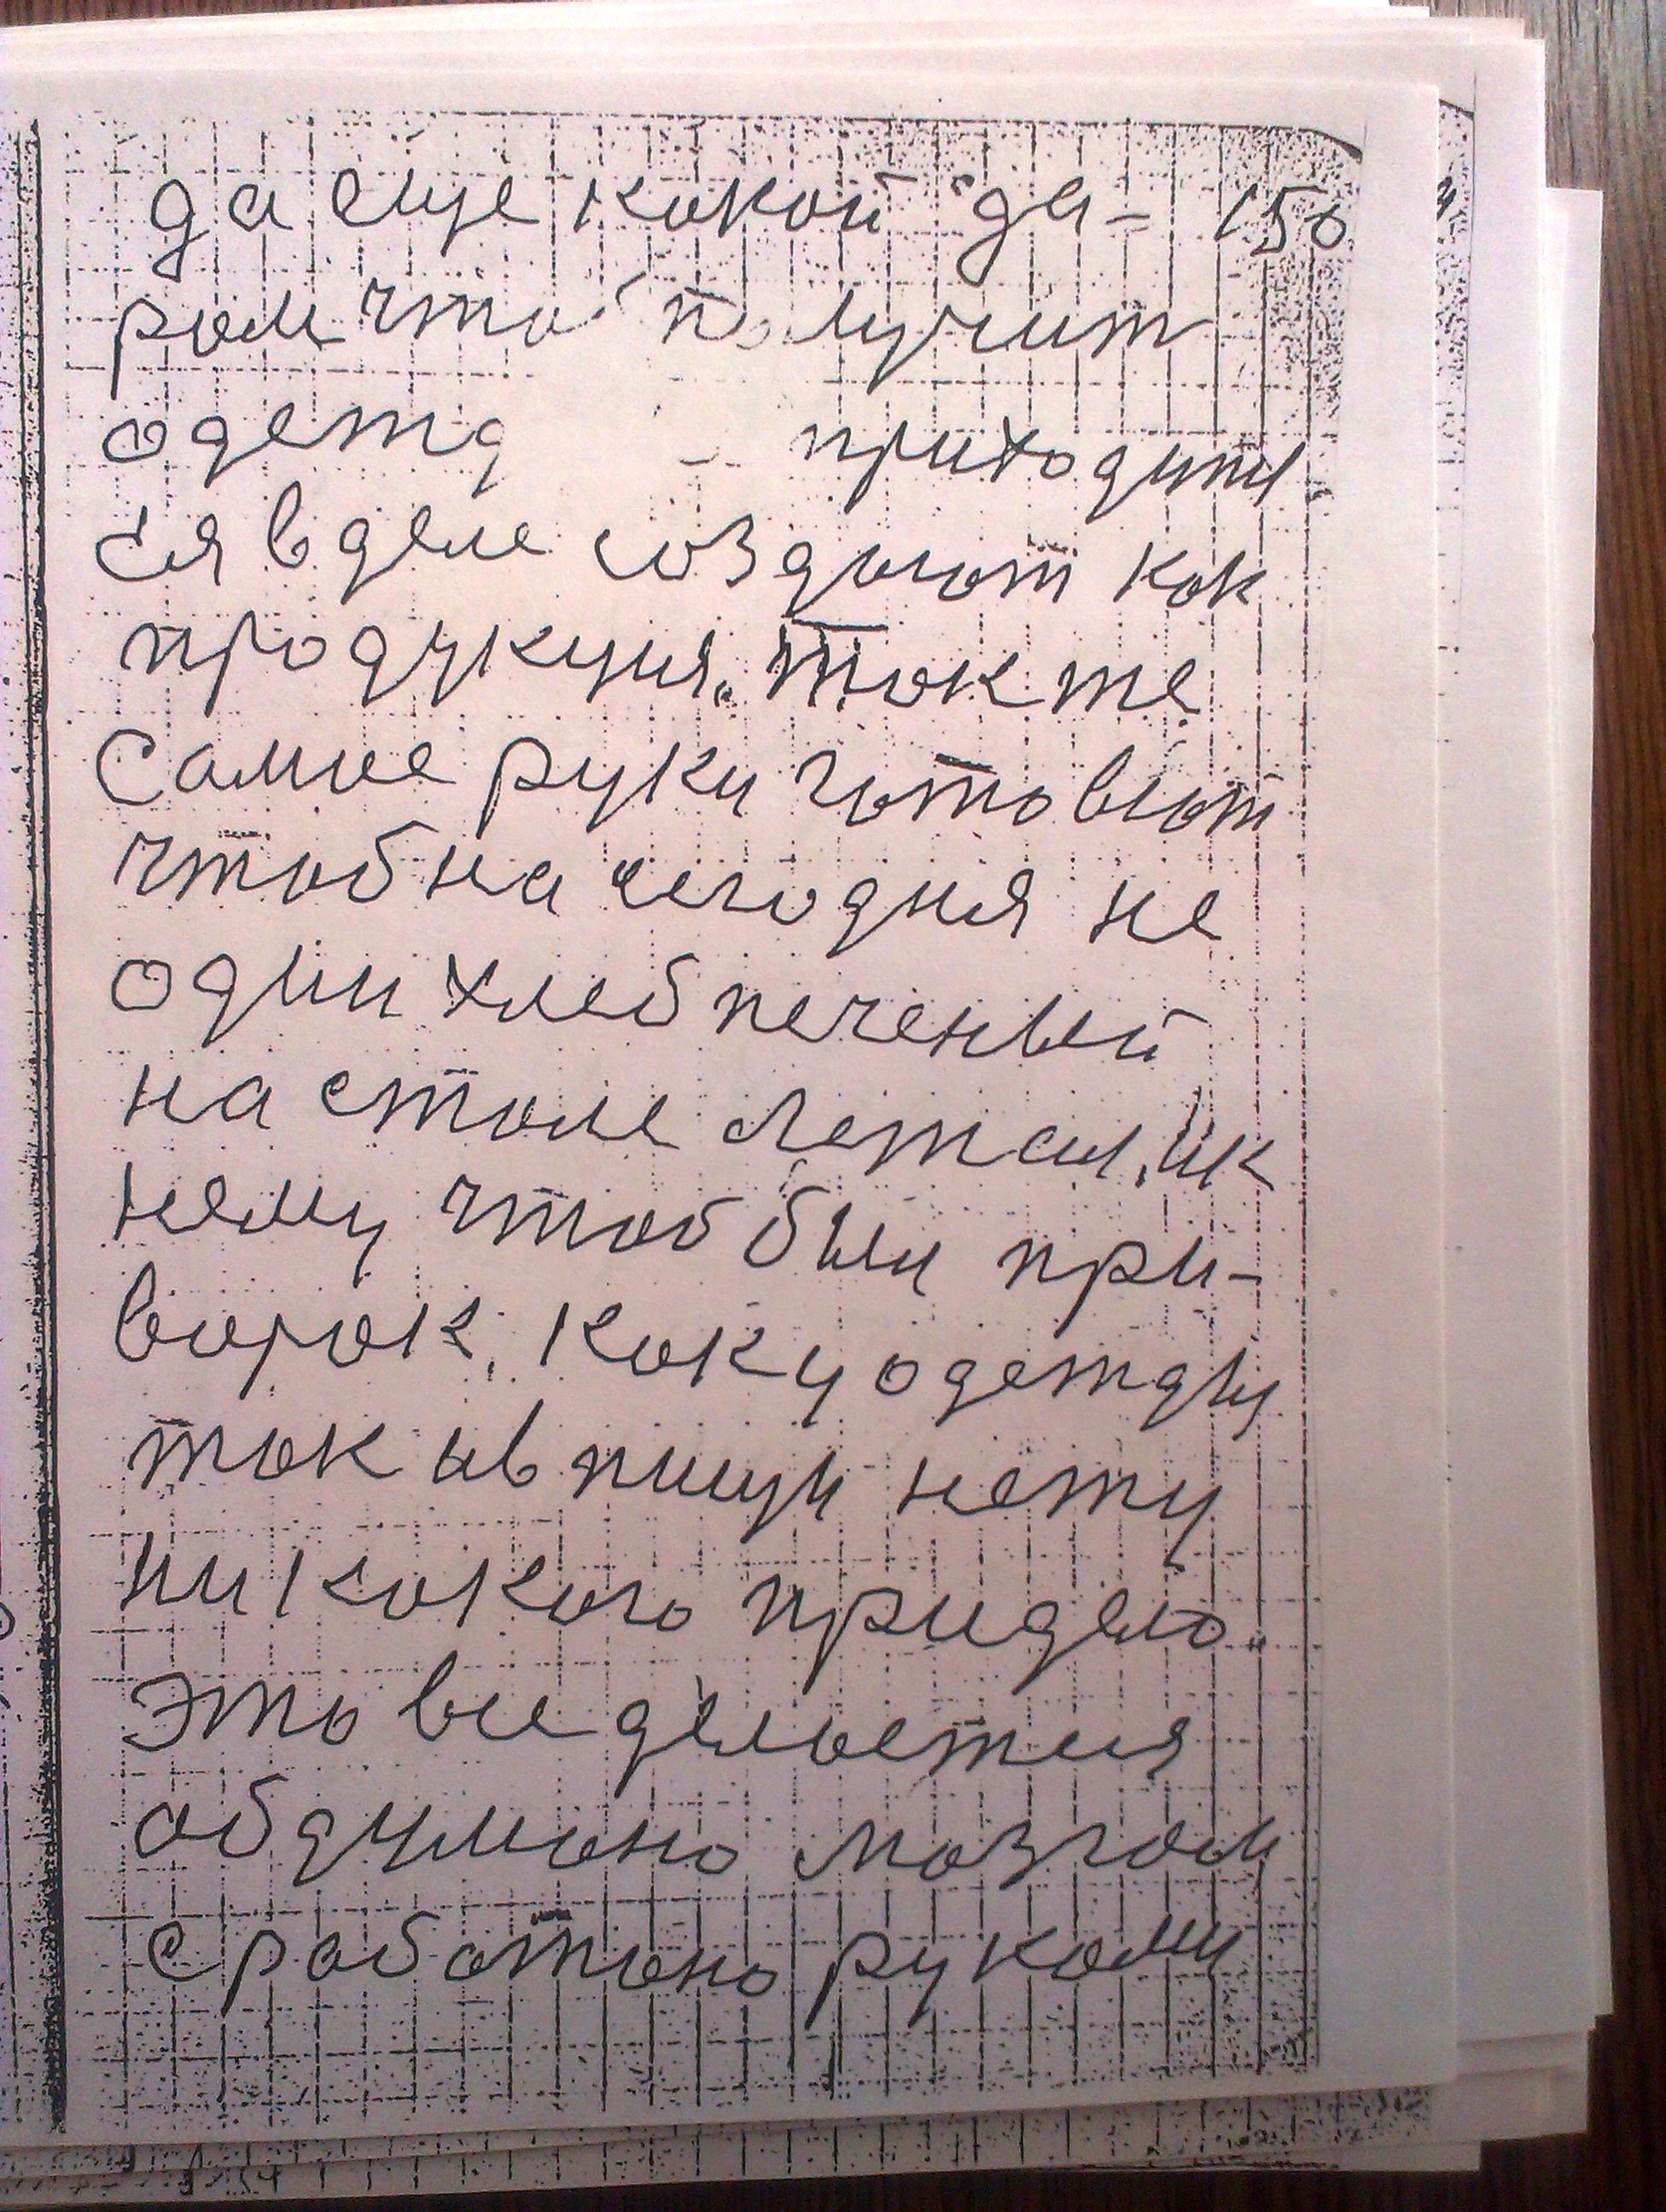 да еще какой да- 150
ром что получит
одежд приходит
ся в деле создают как
продукция. Так же
самое руки готовют
чтоб на сегодня не
один хлеб печеный
на столе лежал, ик
нему чтоб был при-
ворок, каку одежды
так ив пищи нету
никакого придело.
Это все делается
обдумано мозгом
сработано руками